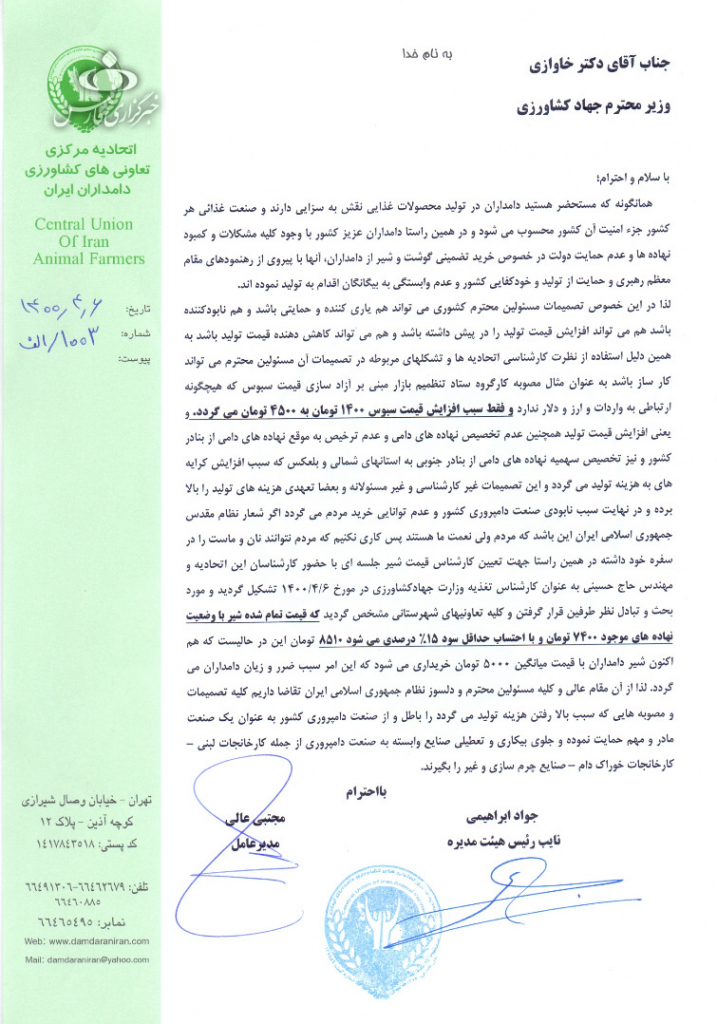 به نام خدا
جناب آقای دکتر خاوازی
وزیر محترم جهاد کشاورزی
با سلام و احترام؛
همانگونه که مستحضر هستید دامداران در تولید محصولات غذایی نقش به سزایی دارند و صنعت غذائی هر
کشور جزء امنیت آن کشور محسوب می شود و در همین راستا دامداران عزیز کشور با وجود کلیه مشکلات و کمبود
نهاده ها و عدم حمایت دولت در خصوص خرید تضمینی گوشت و شیر از دامداران، آنها با پیروی از رهنمودهای مقام
معظم رهبری و حمایت از تولید و خودکفایی کشور و عدم وابستگی به بیگانگان اقدام به تولید نموده اند.
لذا در این خصوص تصمیمات مسئولین محترم کشوری می تواند هم یاری کننده و حمایتی باشد و هم نابودکننده
باشد هم می تواند افزایش قیمت تولید را در پیش داشته باشد و هم می تواند کاهش دهنده قیمت تولید باشد به
همین دلیل استفاده از نظرت کارشناسی اتحادیه ها و تشکلهای مربوطه در تصمیمات آن مسئولین محترم می تواند
کار ساز باشد به عنوان مثال مصوبه کارگروه ستاد تنظمیم بازار مبنی بر آزاد سازی قیمت سبوس که هیچگونه
ارتباطی به واردات و ارز و دلار ندارد و فقط سبب افزایش قیمت سبوس ۱۴۰۰ تومان به ۴۵۰۰ تومان می گردد. و
یعنی افزایش قیمت تولید همچنین عدم تخصیص نهاده های دامی و عدم ترخیص به موقع نهاده های دامی از بنادر
کشور و نیز تخصیص سهمیه نهاده های دامی از بنادر جنوبی به استانهای شمالی و بلعکس که سبب افزایش کرایه
های به هزینه تولید می گردد و این تصمیمات غیر کارشناسی و غیر مسئولانه و بعضا تعهدی هزینه های تولید را بالا
برده و در نهایت سبب نابودی صنعت دامپروری کشور و عدم توانایی خرید مردم می گردد اگر شعار نظام مقدس
جمهوری اسلامی ایران این باشد که مردم ولی نعمت ما هستند پس کاری نکنیم که مردم نتوانند نان و ماست را در
سفره خود داشته در همین راستا جهت تعیین کارشناس قیمت شیر جلسه ای با حضور کارشناسان این اتحادیه و
مهندس حاج حسینی به عنوان کارشناس تغذیه وزارت جهادکشاورزی در مورخ ۱۴۰۰/۴/۶ تشکیل گردید و مورد
بحث و تبادل نظر طرفین قرار گرفتن و کلیه تعاونیهای شهرستانی مشخص گردید که قیمت تمام شده شیر با وضعیت
نهاده های موجود ۷۴۰۰ تومان و با احتساب حداقل سود ۱۵٪ درصدی می شود ۸۵۱۰ تومان این در حالیست که هم
اکنون شیر دامداران با قیمت میانگین ۵۰۰۰ تومان خریداری می شود که این امر سبب ضرر و زیان دامداران می
گردد. لذا از آن مقام عالی و کلیه مسئولین محترم و دلسوز نظام جمهوری اسلامی ایران تقاضا داریم کلیه تصمیمات
و مصوبه هایی که سبب بالا رفتن هزینه تولید می گردد را باطل و از صنعت دامپروری کشور به عنوان یک صنعت
مادر و مهم حمایت نموده و جلوی بیکاری و تعطیلی صنایع وابسته به صنعت دامپروری از جمله کارخانجات لبنی –
کارخانجات خوراک دام – صنایع چرم سازی و غیر را بگیرند.
بااحترام
جواد ابراهیمی
نایب رئیس هیئت مدیره
مجتبی عالی
مدیرعامل
خبرگزاری فارس
اتحادیه مرکزی
تعاونی های کشاورزی
دامداران ایران
Central Union
Of Iran
Animal Farmers
تاریخ: ۱۴۰۰٫۴٫۶
شماره: ۱۰۰۳/الف
پیوست:
تهران - خیابان وصال شیرازی
کوچه آذین - پلاک ۱۲
کد پستی: ۱۴۱۷۸۴۳۵۱۸
تلفن: ۶۶۴۶۲۶۷۹-۶۶۴۹۱۳۰۶
۶۶۴۶۰۸۸۵
نمابر: ۶۶۴۶۵۴۹۵
Web: www.damdaraniran.com
Mail: damdaraniran@yahoo.com